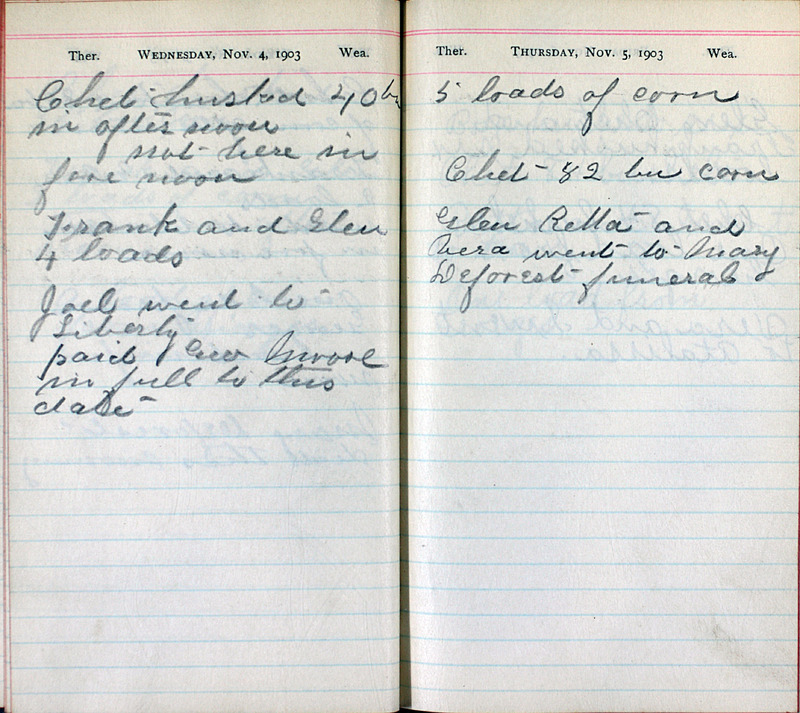 Ther. WEDNESDAY, NOV. 4, 1903 Wea.
Chet husked 40 bu
in after noon
not here in
fore noon
Frank and Glen
4 loads
Joel went to
Liberty
paid Geo Moore
in full to this
date
Ther. THURSDAY, NOV. 5, 1903 Wea.
5 loads of corn
Chet 82 bu corn
Glen Retta and
Vera went to Mary
Deforest funeral